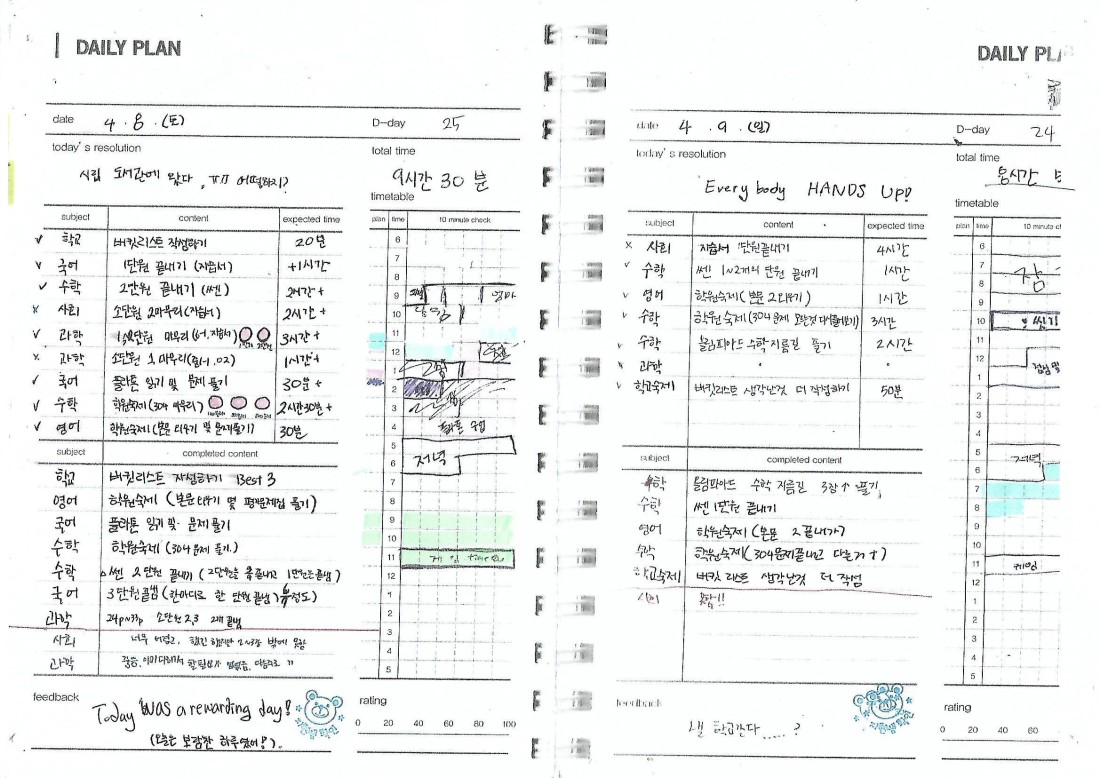 DAILY PLAN
date 4 . 8 . (토)
D-day 25
today's resolution
시립 도서관에 왔다, ㅠㅠ 어떡하지?
total time
9시간 30분
timetable
subject content expected time
plan time 10 minute check
✓ 학교 버킷리스트 작성하기 20분
✓ 국어 1단원 끝내기 (자습서) +1시간
✓ 수학 2단원 끝내기 (쎈) 2시간 +
× 사회 소단원 2 마무리 (자습서) 2시간 +
✓ 과학 3시간 +
× 과학 소단원 1 마무리 1시간 +
✓ 국어 플라톤 읽기 및 문제 풀기 30분 +
✓ 수학 학원숙제 (304 마무리) 2시간30분 +
✓ 영어 학원숙제 (본문 외우기 및 문제풀기) 30분
subject completed content
학교 버킷리스트 작성하기 Best 3
영어 학원숙제 (본문 외우기 및 문제집 풀기)
국어 플라톤 읽기 및 문제 풀기
수학 학원숙제 (304 문제 풀기)
수학 쎈 2단원 끝내기
국어 3단원 끝냄 (한마디로 한 단원 끝냄)
과학 24p~33p 소단원 2,3 2개 끝냄
사회 너무 어렵고,
과학
6
7
8
9
10
11
12
1
2
3
4
5
6
7
8
9
10
11
12
1
2
3
4
5
엄마
저녁
feedback
Today was a rewarding day!
(오늘은 보람찬 하루였어!).
rating
0 20 40 60 80 100
DAILY PLA
date 4 . 9 . (일)
D-day 24
today's resolution
Every body HANDS UP!
total time
timetable
subject content expected time
plan time 10 minute ch
× 사회 자습서 1단원끝내기 4시간
✓ 수학 쎈 1~2개의 단원 끝내기 1시간
✓ 영어 학원숙제 (본문 2 외우기) 1시간
✓ 수학 학원숙제 3시간
✓ 수학 올림피아드 수학 지름길 풀기 2시간
× 과학
✓ 학교숙제 버킷리스트 생각난것 더 작성하기 50분
subject completed content
수학 올림피아드 수학 지름길 3장↑ 풀기
수학 쎈 1단원 끝내기
영어 학원숙제 (본문 2 끝내기)
수학
학교숙제 버킷 리스트 생각난것 더 작성
사회 못함!!
6
7
8
9
10
11
12
1
2
3
4
5
6
7
8
9
10
11
12
1
2
3
4
5
잠
씻기
저녁
게임
feedback
낼 학교간다..... ?
rating
0 20 40 60